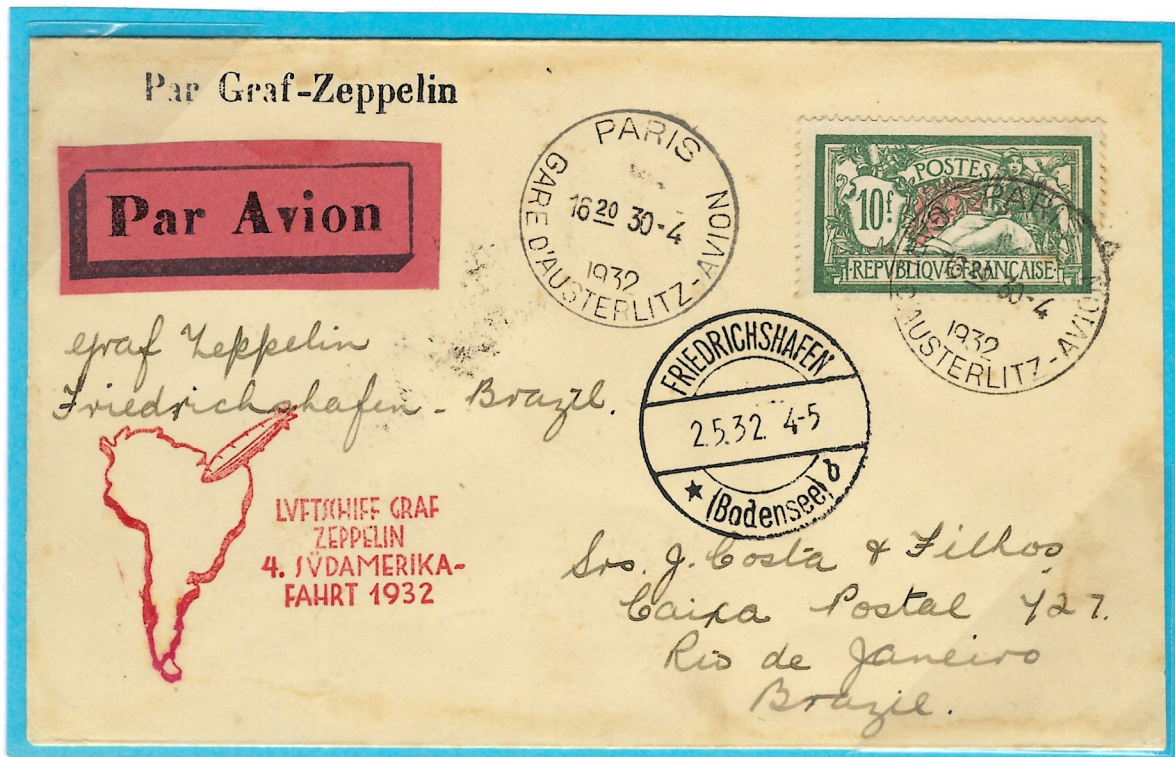 Par Graf-Zeppelin
Par Avion
PARIS
GARE D'AUSTERLITZ-AVION
16 20 30-4
1932
POSTES
10 f
REPVBLIQVE FRANÇAISE
PARIS
GARE D'AUSTERLITZ-AVION
16 20 30-4
1932
Graf Zeppelin
Friedrichshafen - Brazil.
FRIEDRICHSHAFEN
2.5.32. 4-5
(Bodensee) b
LVFTSCHIFF GRAF
ZEPPELIN
4. SÜDAMERIKA-
FAHRT 1932
Srs. J. Costa & Filhos
Caixa Postal 427.
Rio de Janeiro
Brazil.